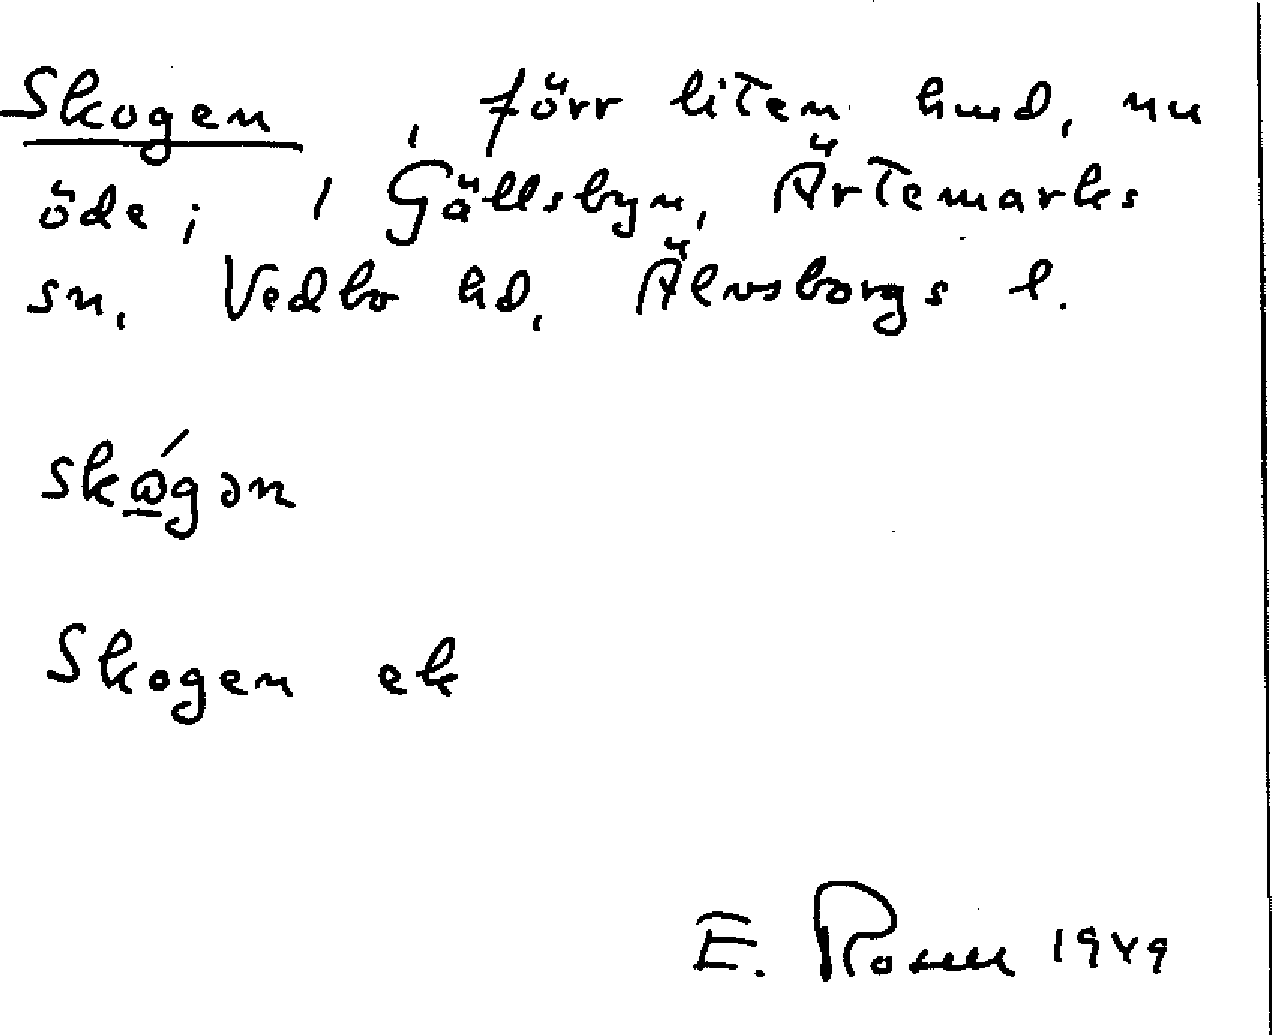 Skogen, förr liten hmd, nu
öde; i Gällsbyn, Ärtemarks
sn, Vedbo hd, Älvsborgs l.
skǫ́gən
Skogen ek
E. Rosell 1949